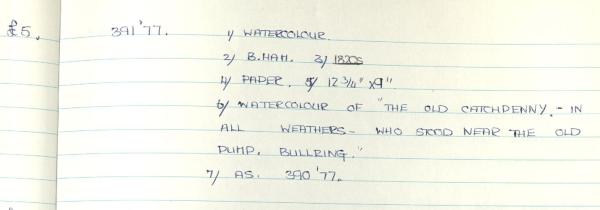 £5. 391'77. 1/ WATERCOLOUR.
2/ B.HAM. 3/ 1820s
4/ PAPER. 5/ 12 3/4" x9"
6/ WATERCOLOUR OF "THE OLD CATCHPENNY. - IN
ALL WEATHERS - WHO STOOD NEAR THE OLD
PUMP, BULLRING."
7/ AS. 390'77.